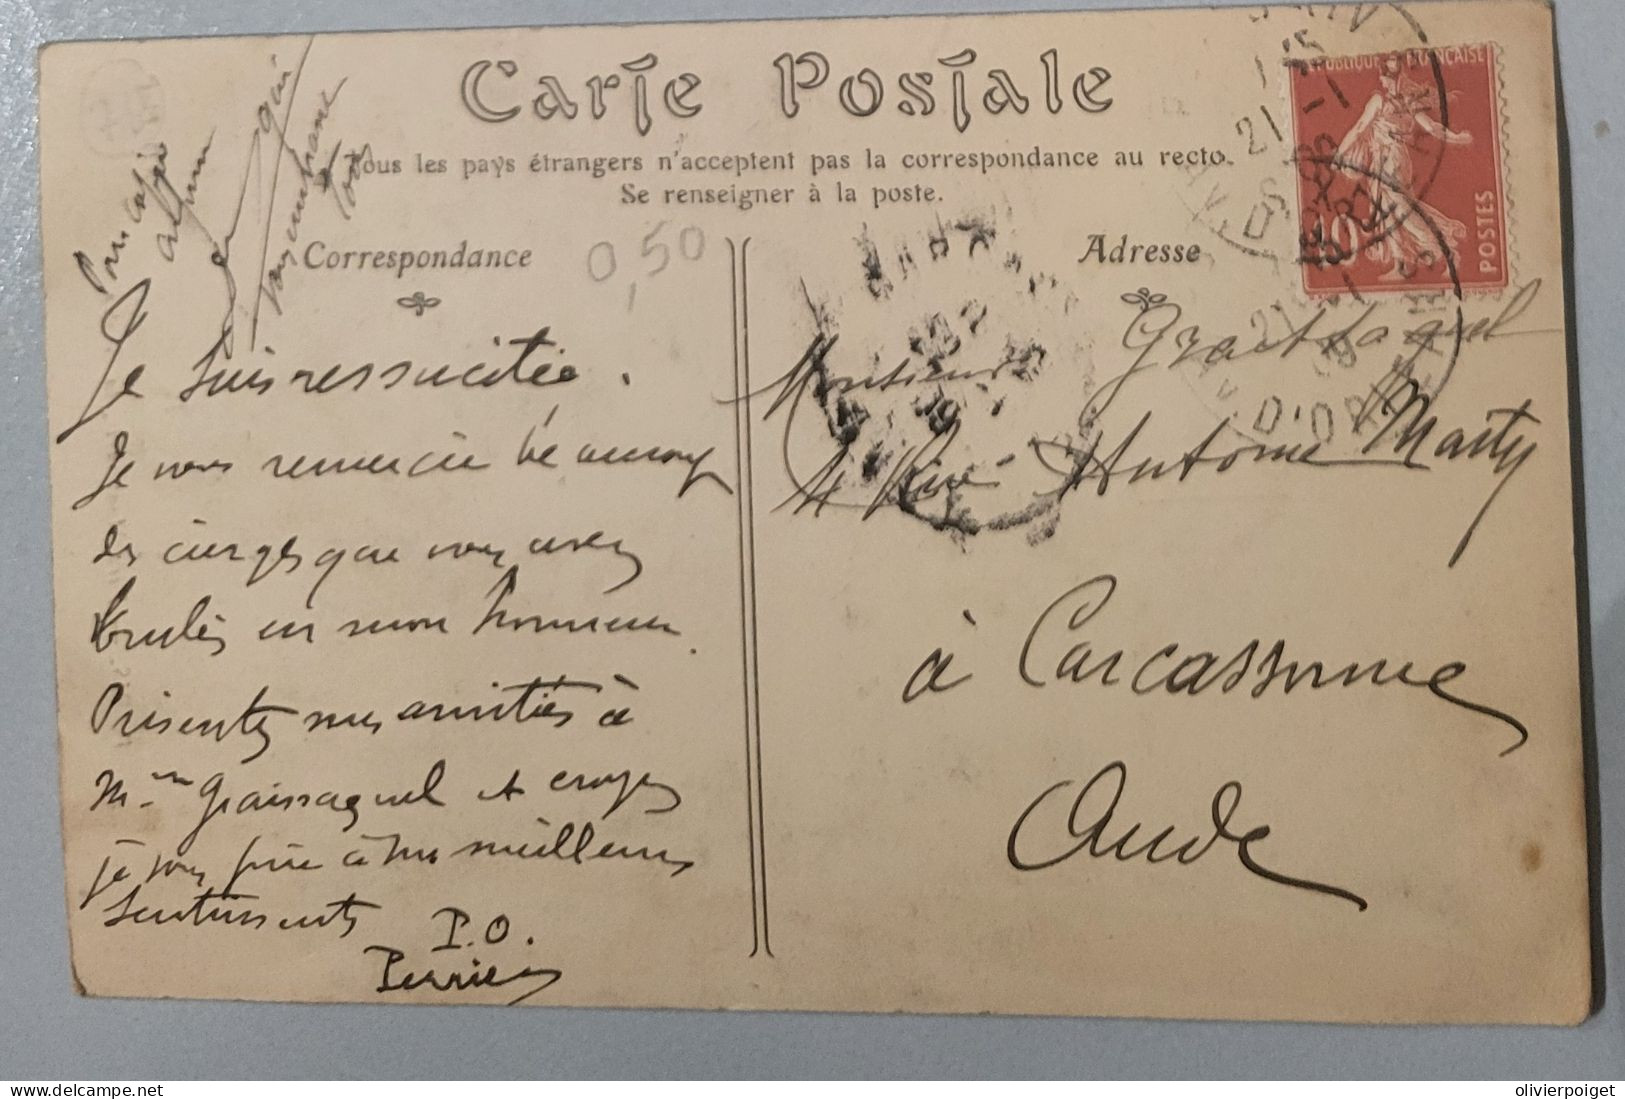 Carte Postale
Tous les pays étrangers n'acceptent pas la correspondance au recto.
Se renseigner à la poste.
Correspondance
0,50
Adresse
RÉPUBLIQUE FRANÇAISE
10
POSTES
21-1
Je suis ressucitée.
Je vous remercie beaucoup
des cierges que vous avez
brulés en mon honneur.
Présentez mes amitiés à
Mme Graissaguel et croyez
je vous prie à mes meilleurs
sentiments
P.O.
Perrier
Monsieur Graissaguel
4 Rue Antoine Marty
à Carcassonne
Aude
olivierpoiget